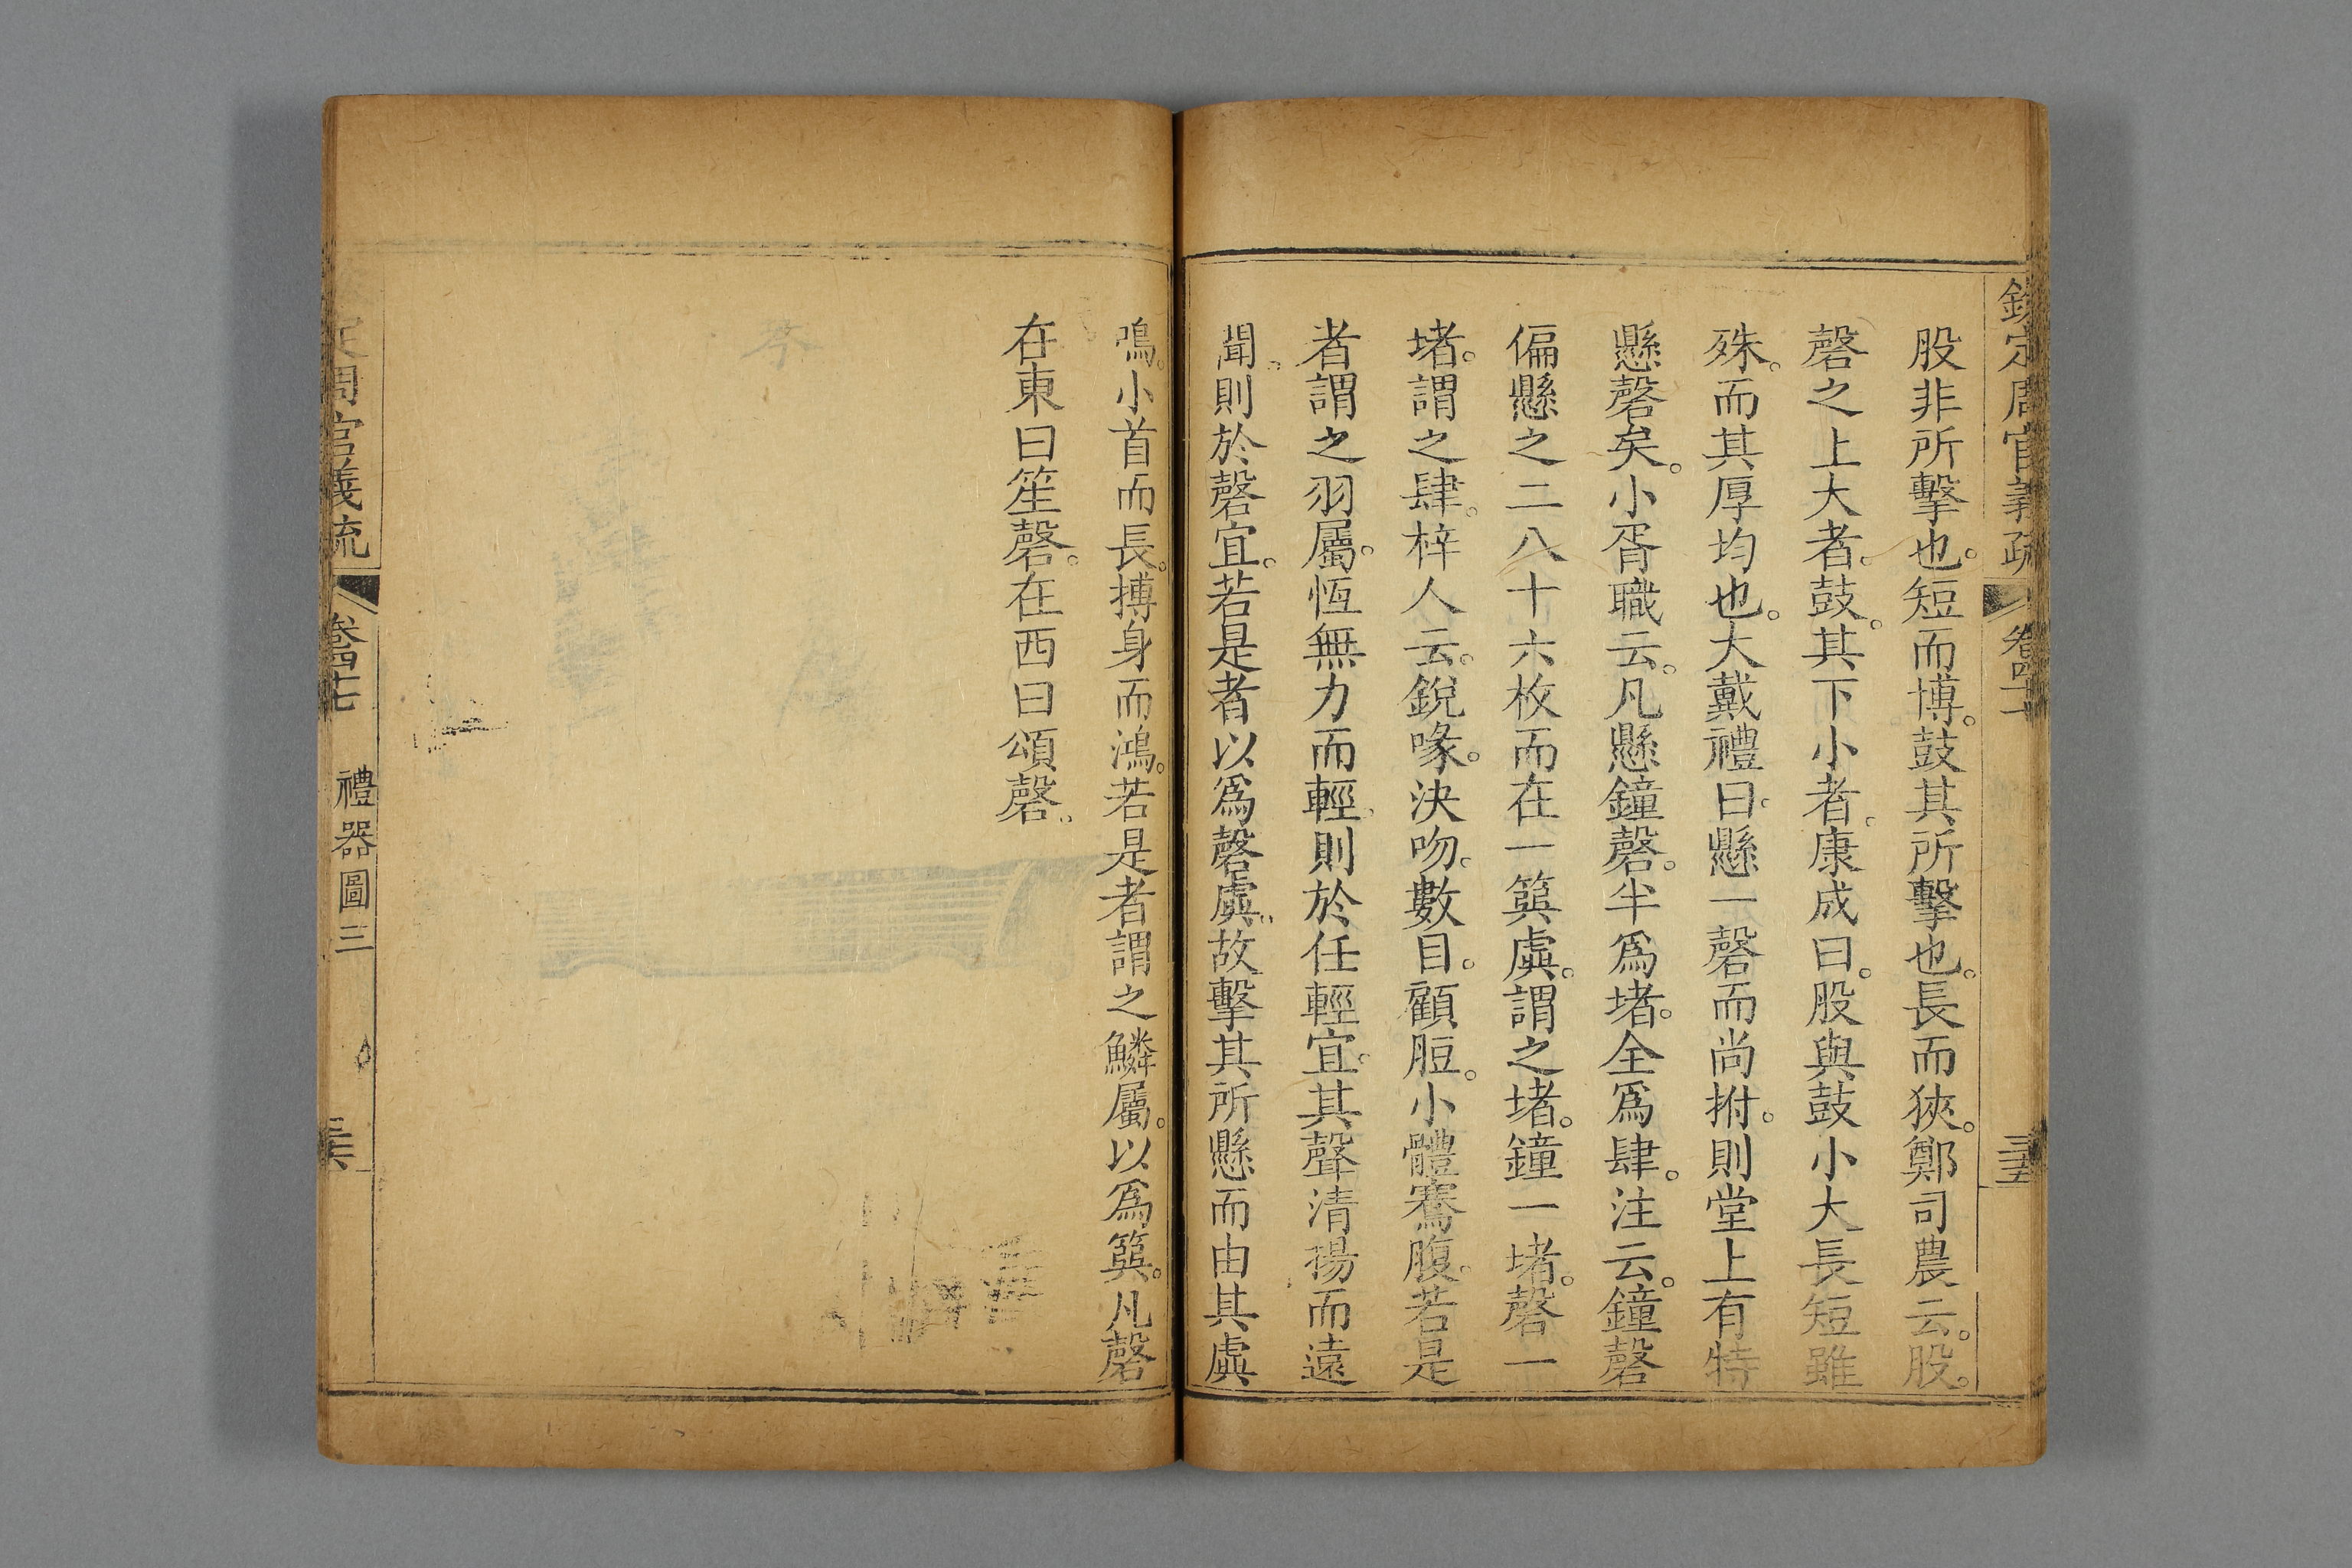 欽定周官義疏 卷四十七 三十五
股非所擊也。短而博。鼓其所擊也。長而狹。鄭司農云。股。
磬之上大者。鼓。其下小者。康成曰。股與鼓小大長短雖
殊。而其厚均也。大戴禮曰。懸一磬而尚拊。則堂上有特
懸磬矣。小胥職云。凡懸鐘磬。半爲堵。全爲肆。注云。鐘磬
偏懸之二八十六枚而在一簨虡。謂之堵。鐘一堵。磬一
堵。謂之肆。梓人云。銳喙。決吻。數目。顧脰。小體騫腹。若是
者謂之羽屬。恆無力而輕。則於任輕宜。其聲清揚而遠
聞。則於磬宜。若是者以爲磬虡。故擊其所懸而由其虡
鳴。小首而長。搏身而鴻。若是者謂之鱗屬。以爲簨。凡磬
在東曰笙磬。在西曰頌磬。
定周官義疏 卷四十七 禮器圖三 三十六